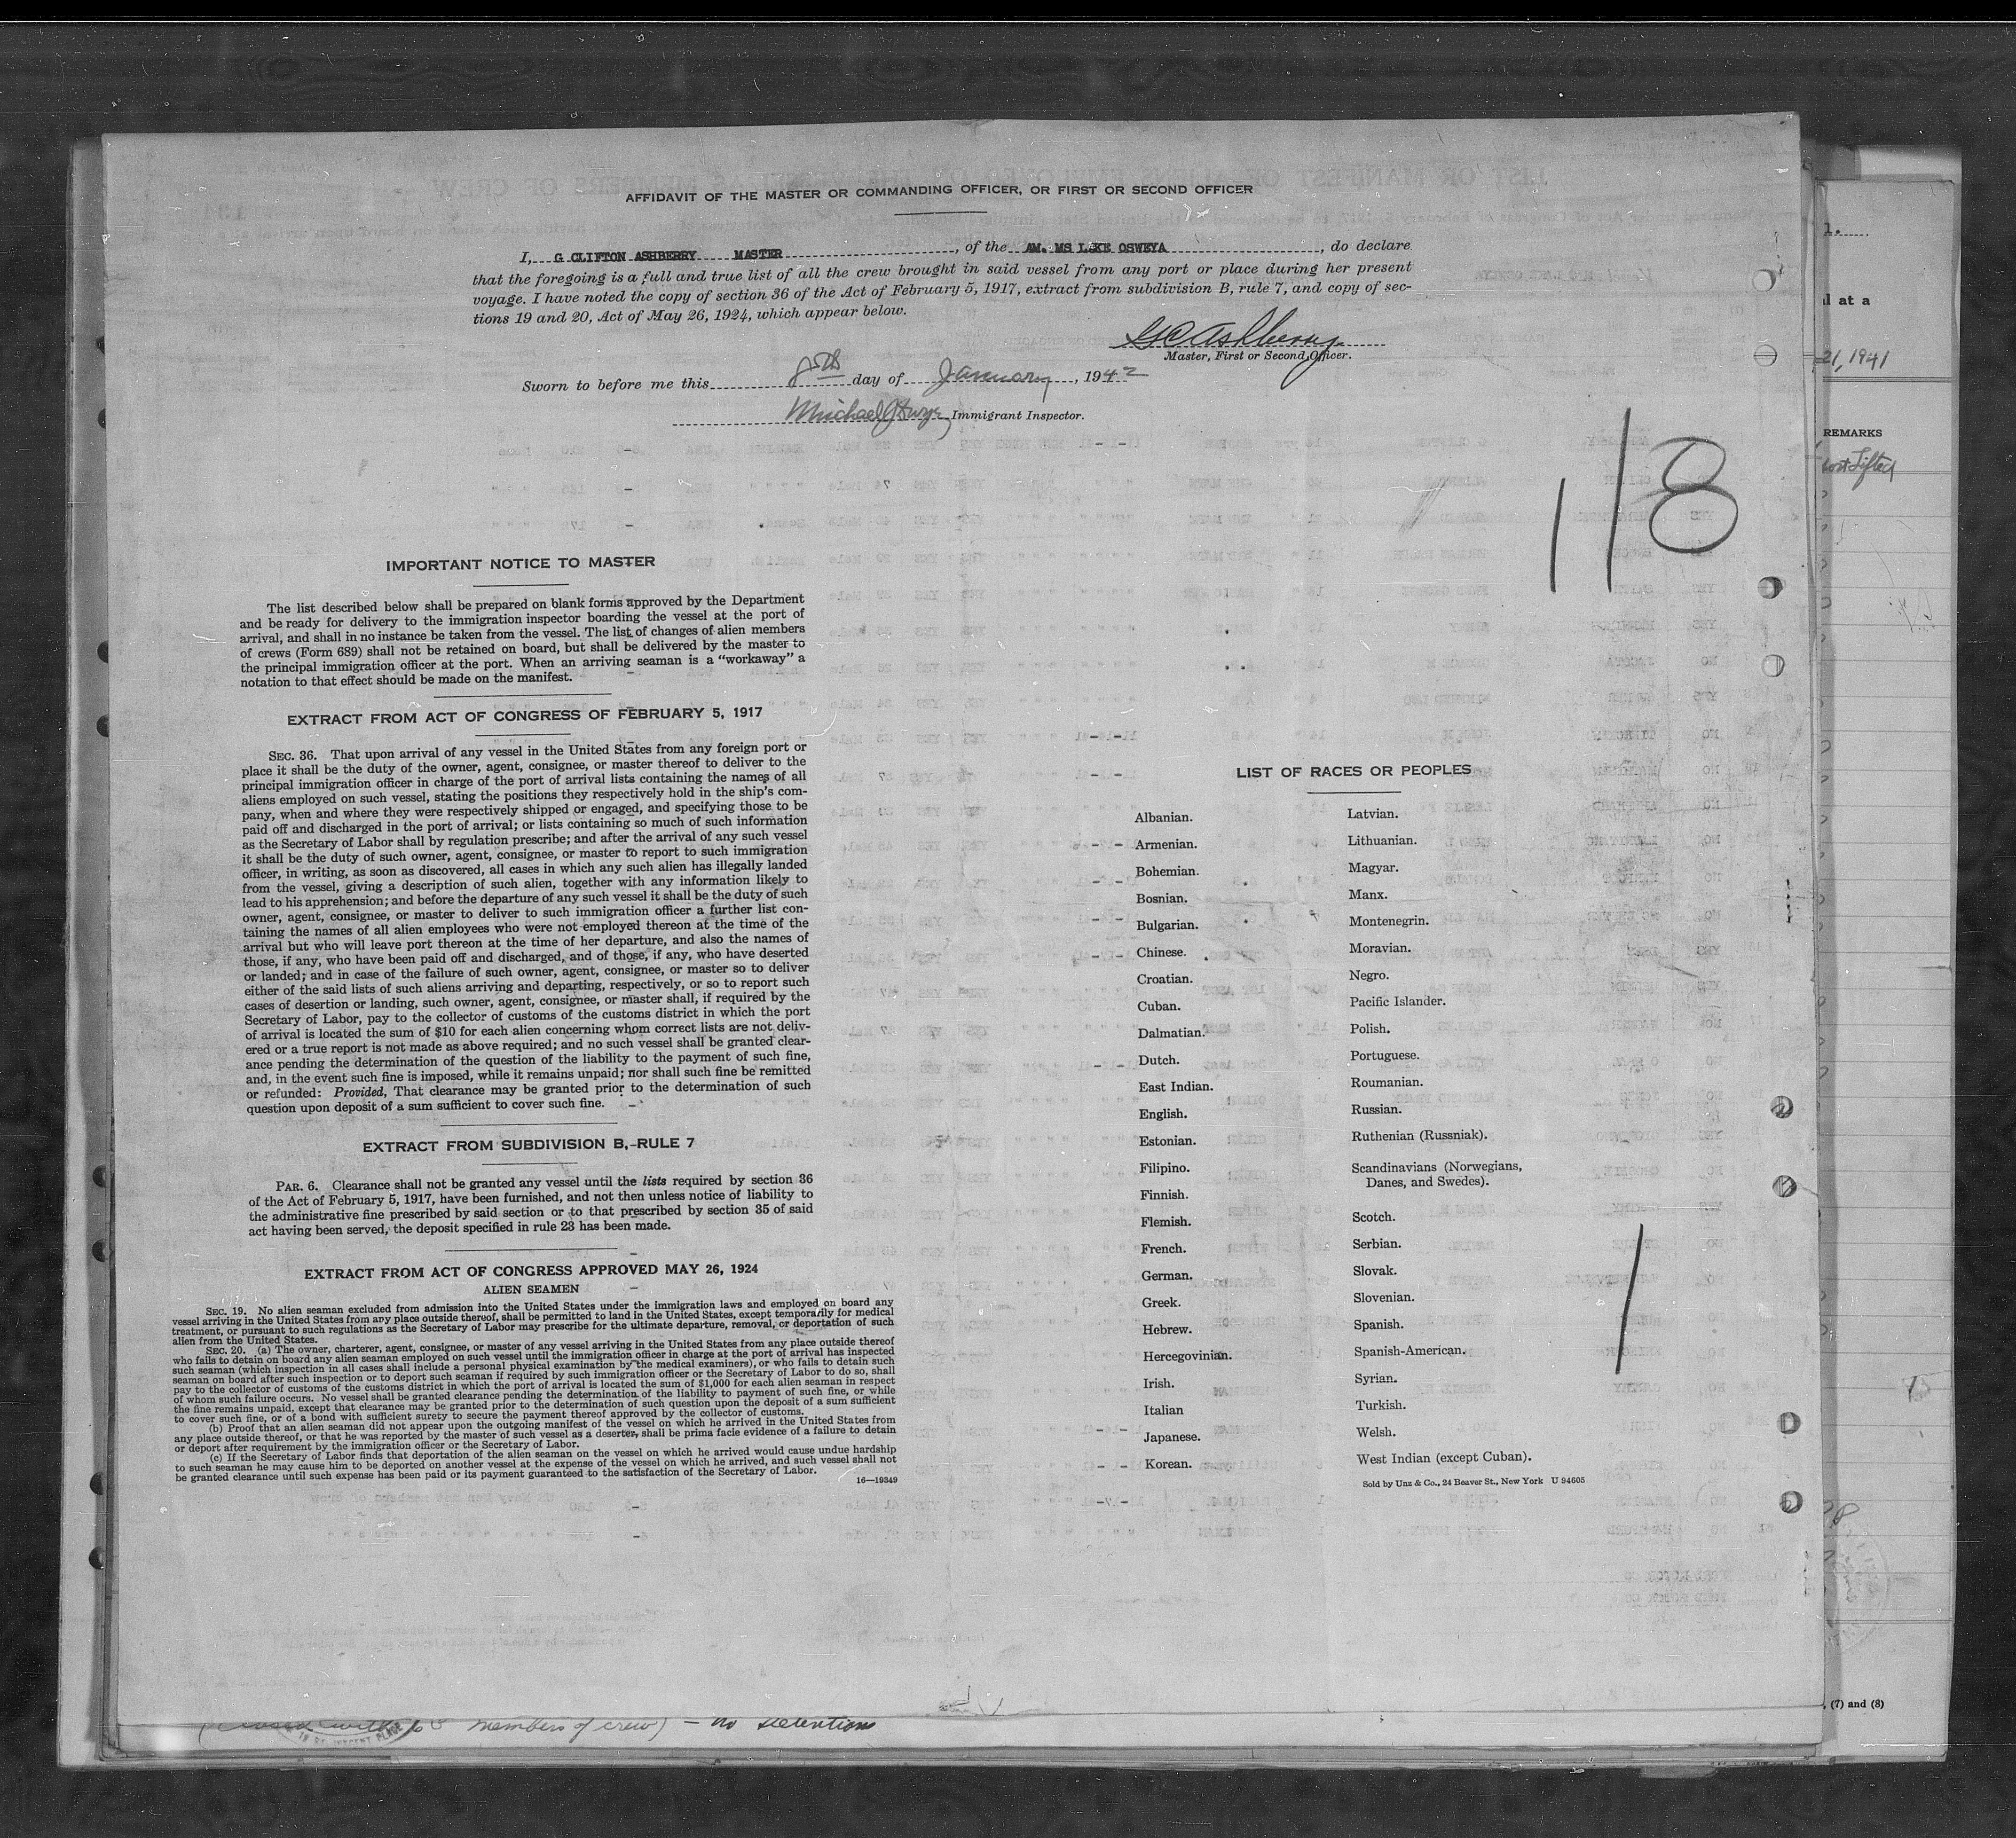 AFFIDAVIT OF THE MASTER OR COMMANDING OFFICER, OR FIRST OR SECOND OFFICER
I, G CLIFTON ASHBERRY MASTER, of the AM. MS LAKE OSWEYA, do declare
that the foregoing is a full and true list of all the crew brought in said vessel from any port or place during her present
voyage. I have noted the copy of section 36 of the Act of February 5, 1917, extract from subdivision B, rule 7, and copy of sec-
tions 19 and 20, Act of May 26, 1924, which appear below.
G C Ashberry
Master, First or Second Officer.
Sworn to before me this 8th day of January, 1942
Michael Immigrant Inspector.
118
IMPORTANT NOTICE TO MASTER
The list described below shall be prepared on blank forms approved by the Department
and be ready for delivery to the immigration inspector boarding the vessel at the port of
arrival, and shall in no instance be taken from the vessel. The list of changes of alien members
of crews (Form 689) shall not be retained on board, but shall be delivered by the master to
the principal immigration officer at the port. When an arriving seaman is a “workaway” a
notation to that effect should be made on the manifest.
EXTRACT FROM ACT OF CONGRESS OF FEBRUARY 5, 1917
SEC. 36. That upon arrival of any vessel in the United States from any foreign port or
place it shall be the duty of the owner, agent, consignee, or master thereof to deliver to the
principal immigration officer in charge of the port of arrival lists containing the names of all
aliens employed on such vessel, stating the positions they respectively hold in the ship's com-
pany, when and where they were respectively shipped or engaged, and specifying those to be
paid off and discharged in the port of arrival; or lists containing so much of such information
as the Secretary of Labor shall by regulation prescribe; and after the arrival of any such vessel
it shall be the duty of such owner, agent, consignee, or master to report to such immigration
officer, in writing, as soon as discovered, all cases in which any such alien has illegally landed
from the vessel, giving a description of such alien, together with any information likely to
lead to his apprehension; and before the departure of any such vessel it shall be the duty of such
owner, agent, consignee, or master to deliver to such immigration officer a further list con-
taining the names of all alien employees who were not employed thereon at the time of the
arrival but who will leave port thereon at the time of her departure, and also the names of
those, if any, who have been paid off and discharged, and of those, if any, who have deserted
or landed; and in case of the failure of such owner, agent, consignee, or master so to deliver
either of the said lists of such aliens arriving and departing, respectively, or so to report such
cases of desertion or landing, such owner, agent, consignee, or master shall, if required by the
Secretary of Labor, pay to the collector of customs of the customs district in which the port
of arrival is located the sum of $10 for each alien concerning whom correct lists are not deliv-
ered or a true report is not made as above required; and no such vessel shall be granted clear-
ance pending the determination of the question of the liability to the payment of such fine,
and, in the event such fine is imposed, while it remains unpaid; nor shall such fine be remitted
or refunded: Provided, That clearance may be granted prior to the determination of such
question upon deposit of a sum sufficient to cover such fine.
EXTRACT FROM SUBDIVISION B, RULE 7
PAR. 6. Clearance shall not be granted any vessel until the lists required by section 36
of the Act of February 5, 1917, have been furnished, and not then unless notice of liability to
the administrative fine prescribed by said section or to that prescribed by section 35 of said
act having been served, the deposit specified in rule 23 has been made.
EXTRACT FROM ACT OF CONGRESS APPROVED MAY 26, 1924
ALIEN SEAMEN
SEC. 19. No alien seaman excluded from admission into the United States under the immigration laws and employed on board any
vessel arriving in the United States from any place outside thereof, shall be permitted to land in the United States, except temporarily for medical
treatment, or pursuant to such regulations as the Secretary of Labor may prescribe for the ultimate departure, removal, or deportation of such
alien from the United States.
SEC. 20. (a) The owner, charterer, agent, consignee, or master of any vessel arriving in the United States from any place outside thereof
who fails to detain on board any alien seaman employed on such vessel until the immigration officer in charge at the port of arrival has inspected
such seaman (which inspection in all cases shall include a personal physical examination by the medical examiners), or who fails to detain such
seaman on board after such inspection or to deport such seaman if required by such immigration officer or the Secretary of Labor to do so, shall
pay to the collector of customs of the customs district in which the port of arrival is located the sum of $1,000 for each alien seaman in respect
of whom such failure occurs. No vessel shall be granted clearance pending the determination of the liability to payment of such fine, or while
the fine remains unpaid, except that clearance may be granted prior to the determination of such question upon the deposit of a sum sufficient
to cover such fine, or of a bond with sufficient surety to secure the payment thereof approved by the collector of customs.
(b) Proof that an alien seaman did not appear upon the outgoing manifest of the vessel on which he arrived in the United States from
any place outside thereof, or that he was reported by the master of such vessel as a deserter, shall be prima facie evidence of a failure to detain
or deport after requirement by the immigration officer or the Secretary of Labor.
(c) If the Secretary of Labor finds that deportation of the alien seaman on the vessel on which he arrived would cause undue hardship
to such seaman he may cause him to be deported on another vessel at the expense of the vessel on which he arrived, and such vessel shall not
be granted clearance until such expense has been paid or its payment guaranteed to the satisfaction of the Secretary of Labor.
16—19349
LIST OF RACES OR PEOPLES
Albanian.
Armenian.
Bohemian.
Bosnian.
Bulgarian.
Chinese.
Croatian.
Cuban.
Dalmatian.
Dutch.
East Indian.
English.
Estonian.
Filipino.
Finnish.
Flemish.
French.
German.
Greek.
Hebrew.
Hercegovinian.
Irish.
Italian
Japanese.
Korean.
Latvian.
Lithuanian.
Magyar.
Manx.
Montenegrin.
Moravian.
Negro.
Pacific Islander.
Polish.
Portuguese.
Roumanian.
Russian.
Ruthenian (Russniak).
Scandinavians (Norwegians,
Danes, and Swedes).
Scotch.
Serbian.
Slovak.
Slovenian.
Spanish.
Spanish-American.
Syrian.
Turkish.
Welsh.
West Indian (except Cuban).
Sold by Unz & Co., 24 Beaver St., New York U 94605
1
1.
l at a
21, 1941
REMARKS
Lifted
15
, (7) and (8)
members of crew) - no detentions